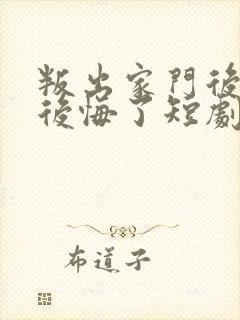 叛出家門後
後悔了短劇
布道子